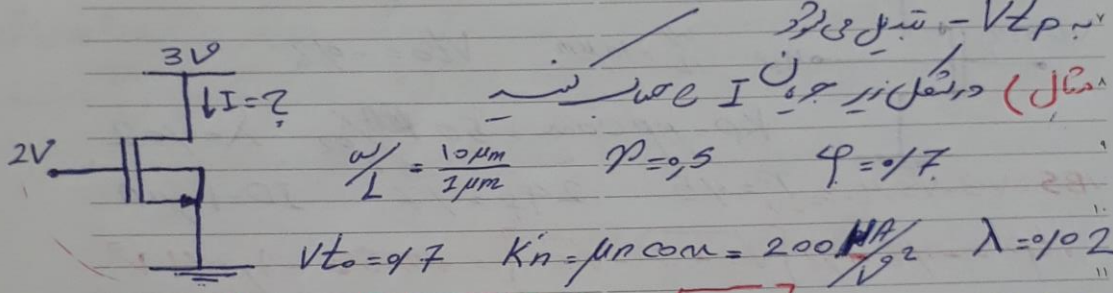 به Vtp - تبدیل می‌شود
مثال) در شکل زیر جریان I را حساب کنید
3V
↓I=?
2V
W/L = 10μm/1μm γ=0,5 φ=0/7
Vt₀=0/7 K'n = μnCox = 200 μA/V² λ=0/02